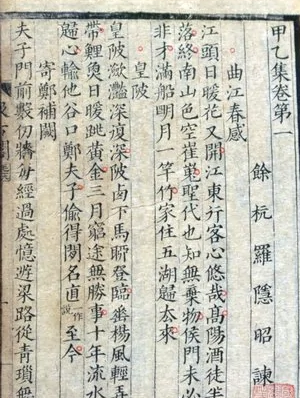 甲乙集卷第一
餘杭羅隱昭諫
曲江春感
江頭日暖花又開江東行客心悠哉高陽酒徒半
落終南山色空崔嵬聖代也知無棄物侯門未必
非才滿船明月一竿竹家住五湖歸去來
皇陂
皇陂瀲灩深復深陂西下馬聊登臨垂楊風輕弄
帶鯉魚日暖跳黃金三月窮途無勝事十年流水
歸心輸他谷口鄭夫子偷得閑名直一作說至今
寄鄭補闕
夫子門前數仞牆每經過處憶遊梁路從青瑣無